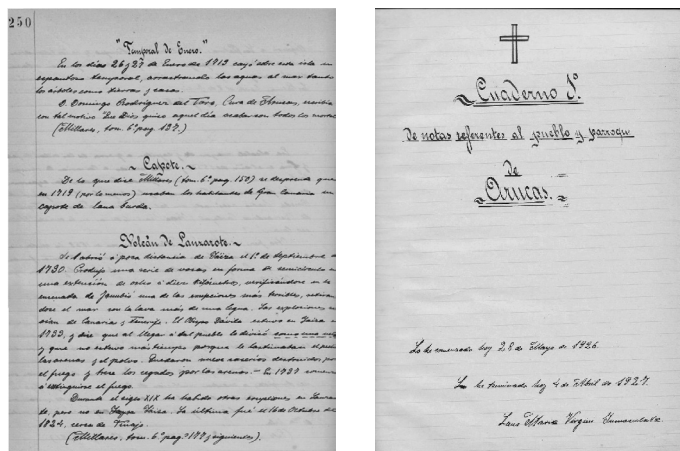 250
"Temporal de Enero."
En los días 26 y 27 de Enero de 1713 cayó sobre esta isla un
espantoso temporal, arrastrando las aguas al mar tanto
los árboles como tierras y casas.
D. Domingo Rodríguez del Toro, Cura de
con tal motivo "Que Dios quiso aquel día acabar con todos los
(Millares, tom. 6º pag. 127.)
Capote.
De lo que dice Millares (tom. 6º pag. 150) se desprende que
en 1719 (por lo menos) usaban los habitantes de Gran Canaria un
capote de lana burda.
Volcán de Lanzarote.
Se abrió á poca distancia de Yaiza el 1º de Septiembre de
1730. Produjo una serie de bocas en forma de semicírculo en
una extensión de ocho ó diez kilómetros, verificándose en la
ensenada de Janubio una de las erupciones más terribles, retirán
dose el mar con la lava más de una legua. Las explosiones se
oían de Canaria y Tenerife. El Obispo Dávila estuvo en Yaiza en
1733, y dice que al llegar á tal pueblo le
y que no estuvo más tiempo porque le lastimaban el
las arenas y el polvo. Quedaron nueve caseríos destruidos por
el fuego y trece los cegados por las arenas. - En 1737
á extinguirse el fuego.
Durante el siglo XIX ha habido otras erupciones en Lanzaro
te, pero no en La última fué el 16 de Octubre de
1824, cerca de Tinajo.
(Millares, tom. 6º pag. 177 y siguientes).
Cuaderno 1º.
De notas referentes al pueblo y parroqu
de
Arucas.
Lo he comenzado hoy 28 de Mayo de 1926.
Lo he terminado hoy 4 de Abril de 1927.
Laus Mariae Virgini Immaculatae.